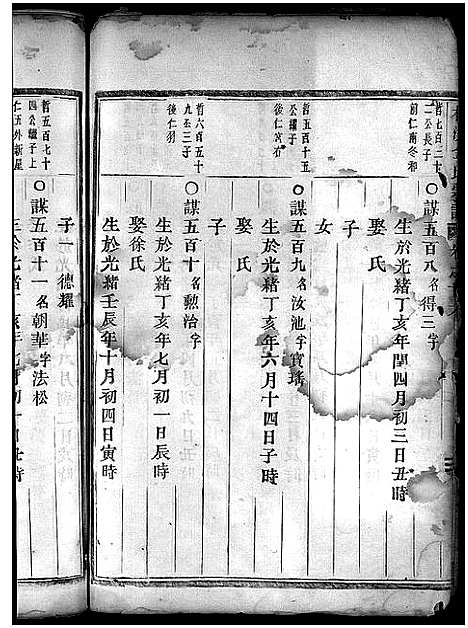 哲七百三十
二公長子
前仁南冬和
謀五百八名得三字
生於光緒丁亥年閏四月初三日丑時
娶 氏
子
女
哲五百十五
公繼子
後仁宮右
謀五百九名汝池字寶瑤
生於光緒丁亥年六月十四日子時
娶 氏
子
哲六百五十
九公三子
後仁
謀五百十名勲治字
生於光緒丁亥年七月初一日辰時
娶徐氏
生於光緒壬辰年十月初四日寅時
子一 德燿
哲五百七十
四公繼子上
仁五外新屋
謀五百十一名朝華字法松